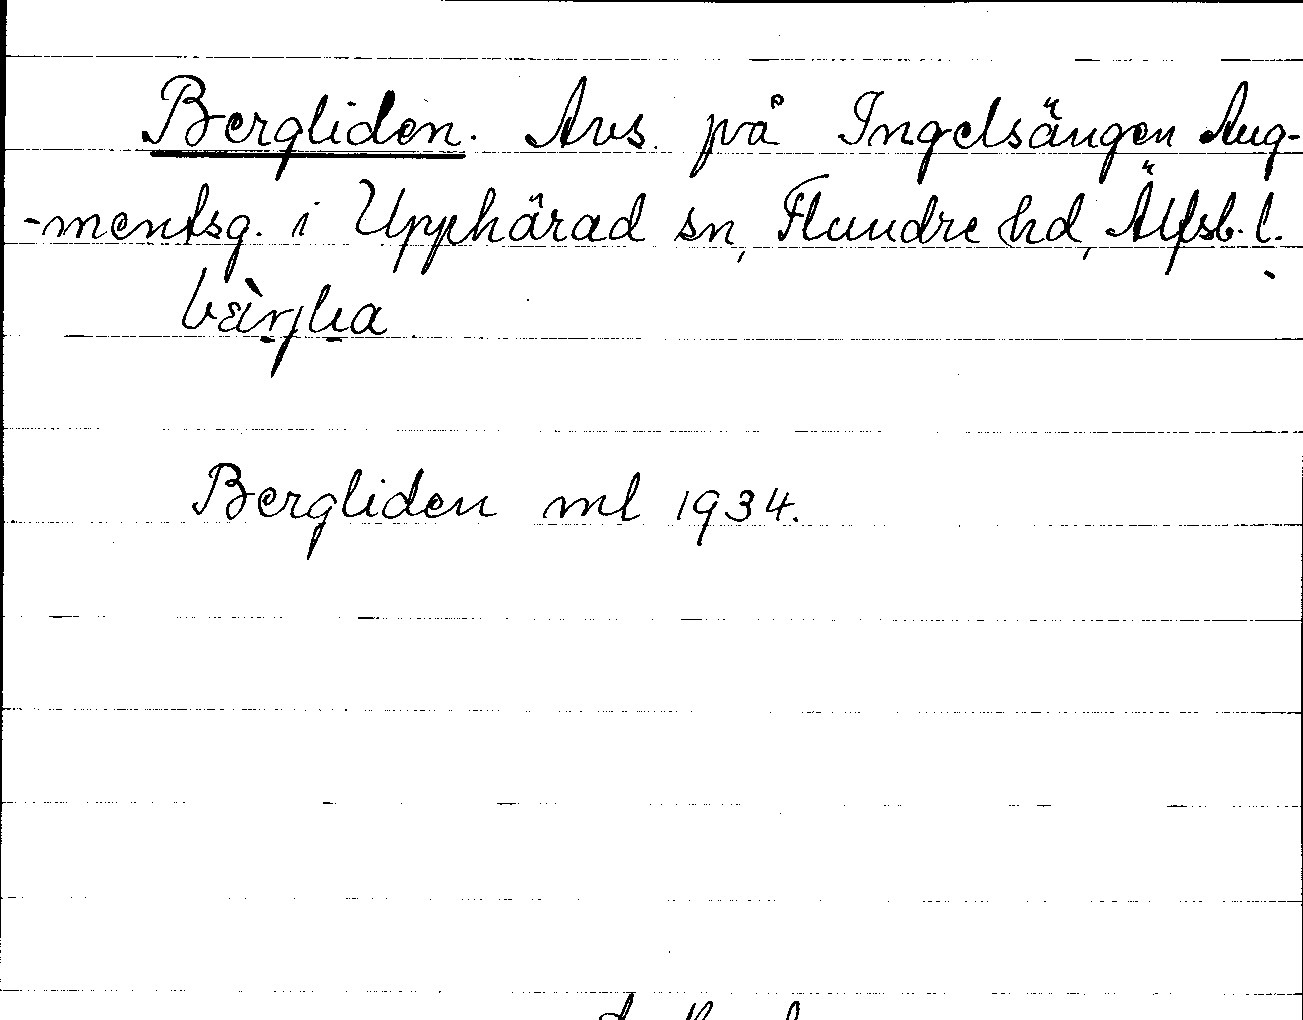 Bergliden. Avs. på Ingelsängen Aug-
-mentsg. i Upphärad sn, Flundre hd, Älfsb. l.
Bergliden ml 1934.